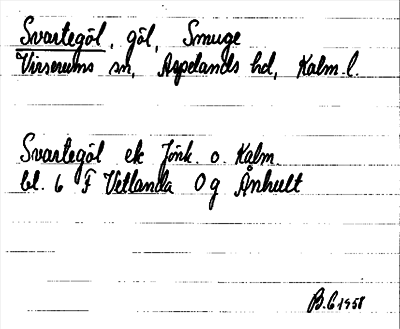 Svartegöl, göl, Smuge
Virserums sn, Aspelands hd, Kalm. l.
Svartegöl ek Jönk. o. Kalm.
bl. 6 F Vetlanda Og Ånhult
B.C 1958